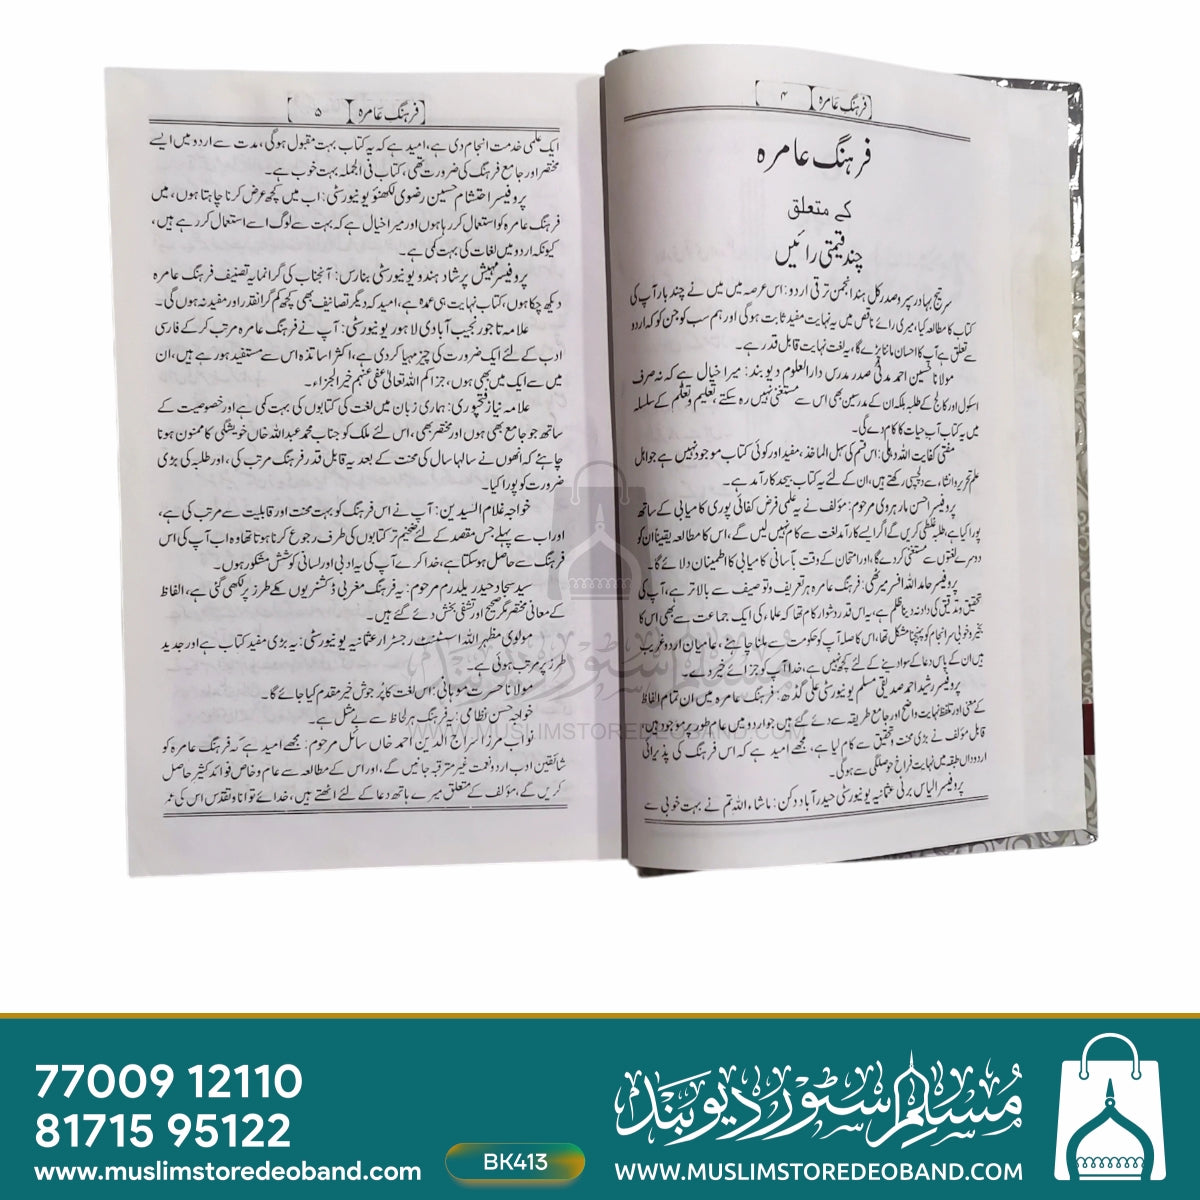 فرہنگ عامرہ
۴
فرہنگ عامرہ
کے متعلق
چند قیمتی رائیں
سر تیج بہادر سپرو صدر کل ہند انجمن ترقی اردو: اس عرصہ میں میں نے چند بار آپ کی
کتاب کا مطالعہ کیا، میری رائے ناقص میں یہ نہایت مفید ثابت ہوگی اور ہم سب کو جن کو کہ اردو
سے تعلق ہے آپ کا احسان ماننا پڑے گا، یہ لغت نہایت قابل قدر ہے۔
مولانا حسین احمد مدنی صدر مدرس دارالعلوم دیوبند: میرا خیال ہے کہ نہ صرف
اسکول اور کالج کے طلبہ بلکہ ان کے مدرسین بھی اس سے مستغنی نہیں رہ سکتے، تعلیم و تعلم کے سلسلہ
میں یہ کتاب آب حیات کا کام دے گی۔
مفتی کفایت اللہ دہلی: اس قسم کی سہل الماخذ، مفید اور کوئی کتاب موجود نہیں ہے جو اہل
علم تحریر و انشاء سے دلچسپی رکھتے ہیں، ان کے لئے یہ کتاب بیحد کار آمد ہے۔
پروفیسر احسن مارہروی مرحوم: مؤلف نے یہ علمی فرض کفائی پوری کامیابی کے ساتھ
پورا کیا ہے، طلبہ غلطی کریں گے اگر ایسے کارآمد لغت سے کام نہیں لیں گے، اس کا مطالعہ یقیناً ان کو
دوسرے لغتوں سے مستغنی کر دے گا، اور امتحان کے وقت بآسانی کامیابی کا اطمینان دلائے گا۔
پروفیسر حامد اللہ افسر میرٹھی: فرہنگ عامرہ ہر تعریف و توصیف سے بالاتر ہے، آپ کی
تحقیق و تدقیق کی داد نہ دینا ظلم ہے، یہ اس قدر دشوار کام تھا کہ علماء کی ایک جماعت سے بھی اس کا
بخیر و خوبی سر انجام کو پہنچنا مشکل تھا، اس کا صلہ آپ کو حکومت سے ملنا چاہئے، عامیان اردو غریب
ہیں ان کے پاس دعا کے سوا دینے کے لئے کچھ نہیں ہے، خدا آپ کو جزائے خیر دے۔
پروفیسر رشید احمد صدیقی مسلم یونیورسٹی علی گڈھ: فرہنگ عامرہ میں ان تمام الفاظ
کے معنی اور تلفظ نہایت واضح اور جامع طریقہ سے دئے گئے ہیں جو اردو میں عام طور پر موجود ہیں،
قابل مؤلف نے بڑی محنت و تحقیق سے کام لیا ہے، مجھے امید ہے کہ اس فرہنگ کی پذیرائی
اردو داں طبقہ میں نہایت فراخ حوصلگی سے ہوگی۔
پروفیسر الیاس برنی عثمانیہ یونیورسٹی حیدرآباد دکن: ماشاء اللہ تم نے بہت خوبی سے
فرہنگ عامرہ
۵
ایک علمی خدمت انجام دی ہے، امید ہے کہ یہ کتاب بہت مقبول ہوگی، مدت سے اردو میں ایسے
مختصر اور جامع فرہنگ کی ضرورت تھی، کتاب فی الجملہ بہت خوب ہے۔
پروفیسر احتشام حسین رضوی لکھنؤ یونیورسٹی: اب میں کچھ عرض کرنا چاہتا ہوں، میں
فرہنگ عامرہ کو استعمال کر رہا ہوں اور میرا خیال ہے کہ بہت سے لوگ اسے استعمال کر رہے ہیں،
کیونکہ اردو میں لغات کی بہت کمی ہے۔
پروفیسر مہیش پرشاد ہندو یونیورسٹی بنارس: آنجناب کی گرانمایہ تصنیف فرہنگ عامرہ
دیکھ چکا ہوں، کتاب نہایت ہی عمدہ ہے، امید کہ دیگر تصانیف بھی کچھ کم گرانقدر اور مفید نہ ہوں گی۔
علامہ تاجور نجیب آبادی لاہور یونیورسٹی: آپ نے فرہنگ عامرہ مرتب کر کے فارسی
ادب کے لئے ایک ضرورت کی چیز مہیا کر دی ہے، اکثر اساتذہ اس سے مستفید ہو رہے ہیں، ان
میں سے ایک میں بھی ہوں، جزاکم اللہ تعالیٰ عفی عنہم خیر الجزاء۔
علامہ نیاز فتحپوری: ہماری زبان میں لغت کی کتابوں کی بہت کمی ہے اور خصوصیت کے
ساتھ جو جامع بھی ہوں اور مختصر بھی، اس لئے ملک کو جناب محمد عبداللہ خاں خویشگی کا ممنون ہونا
چاہئے کہ انھوں نے سالہا سال کی محنت کے بعد یہ قابل قدر فرہنگ مرتب کی، اور طلبہ کی بڑی
ضرورت کو پورا کیا۔
خواجہ غلام السیدین: آپ نے اس فرہنگ کو بہت محنت اور قابلیت سے مرتب کی ہے،
اور اب سے پہلے جس مقصد کے لئے ضخیم تر کتابوں کی طرف رجوع کرنا ہوتا تھا وہ اب آپ کی اس
فرہنگ سے حاصل ہو سکتا ہے، خدا کرے آپ کی یہ ادبی اور لسانی کوشش مشکور ہوں۔
سید سجاد حیدر یلدرم مرحوم: یہ فرہنگ مغربی ڈکشنریوں کے طرز پر لکھی گئی ہے، الفاظ
کے معانی مختصر مگر صحیح اور تشفی بخش دئے گئے ہیں۔
مولوی مظہر اللہ اسسٹنٹ رجسٹرار عثمانیہ یونیورسٹی: یہ بڑی مفید کتاب ہے اور جدید
طرز پر مرتب ہوئی ہے۔
مولانا حسرت موہانی: اس لغت کا پر جوش خیر مقدم کیا جائے گا۔
خواجہ حسن نظامی: یہ فرہنگ ہر لحاظ سے بے مثل ہے۔
نواب مرزا سراج الدین احمد خاں سائل مرحوم: مجھے امید ہے کہ فرہنگ عامرہ کو
شائقین ادب اردو نعمت غیر مترقبہ جانیں گے، اور اس کے مطالعہ سے عام و خاص فوائد کثیر حاصل
کریں گے، مؤلف کے متعلق میرے ہاتھ دعا کے لئے اٹھتے ہیں، خدائے توانا و تقدس اس کی عمر
مسلم سٹور دیوبند
WWW.MUSLIMSTOREDEOBAND.COM
77009 12110
81715 95122
www.muslimstoredeoband.com
BK413
مسلم سٹور دیوبند
WWW.MUSLIMSTOREDEOBAND.COM